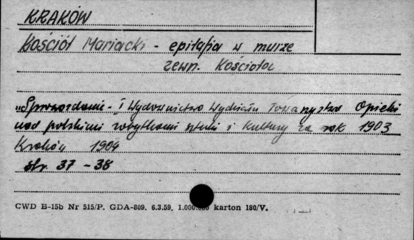 KRAKÓW
Kościół Mariacki - epitafia w murze
zewn. Kościoła
Sprawozdanie - i Wydawnictwo Wydziału Towarzystwa Opieki
nad polskimi zabytkami sztuki i kultury za rok 1903
Kraków 1904
str. 37 - 38
CWD B-15b Nr 515/P. GDA-809. 6.3.59. 1.000.000 karton 180/V.